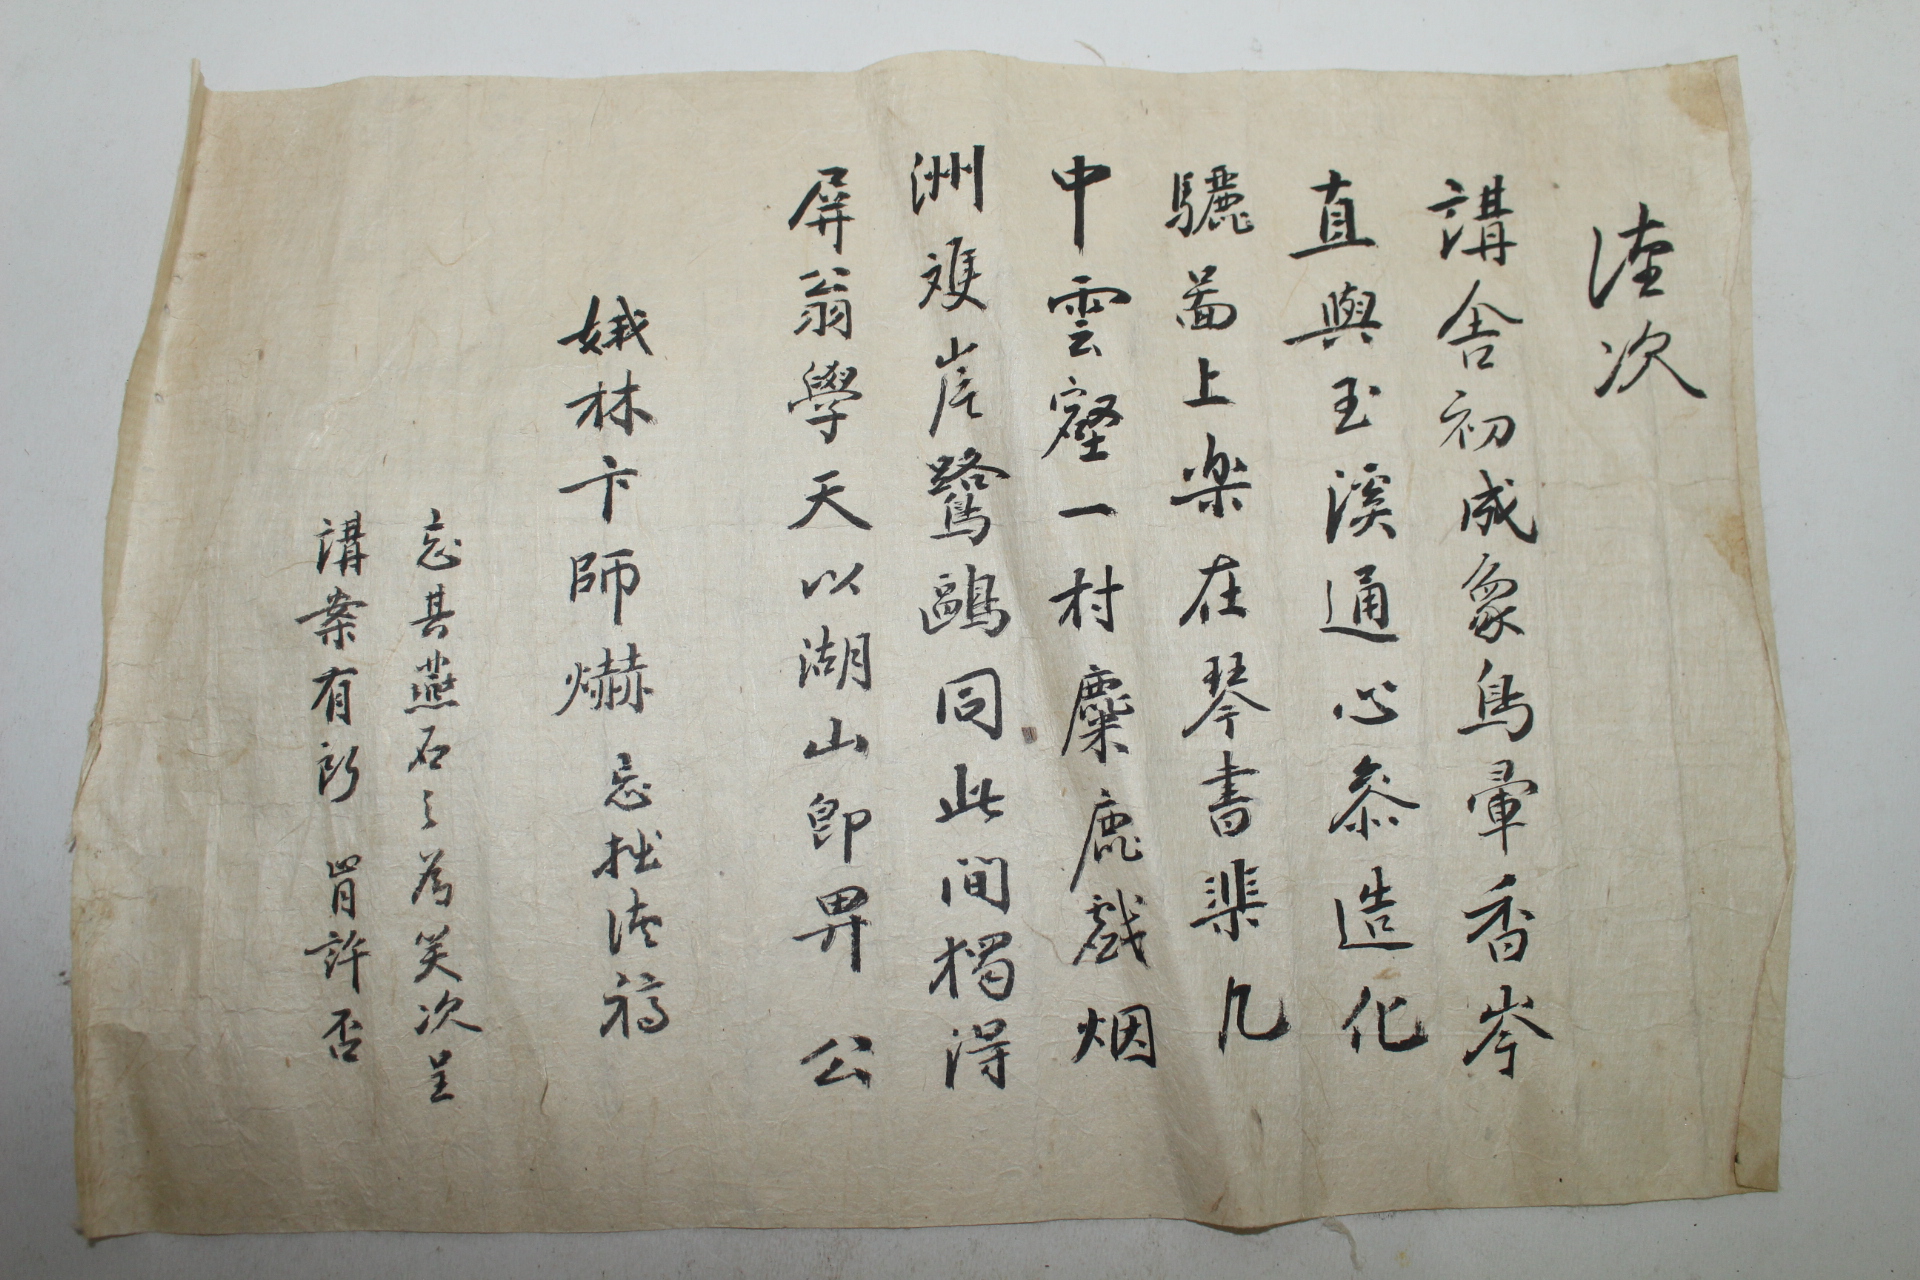 謹次
講舍初成象鳥翬香岑
直與玉溪通心參造化
驪啚上樂在琴書棐几
中雲壑一村麋鹿戱烟
洲雙岸鷺鷗同此間獨得
屛翁學天以湖山卽畀公
娥林卞師爀忘拙謹稿
忘其燕石之爲笑次呈
講案有所 肯許否